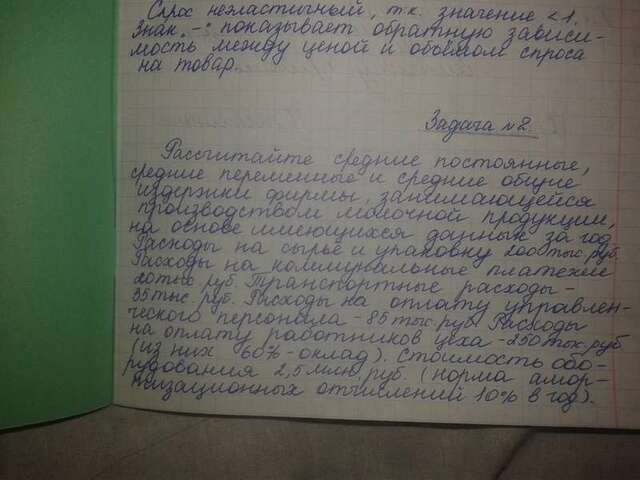 Спрос неэластичный, т.к. значение < 1.
Знак „-": показывает обратную зависи-
мость между ценой и объёмом спроса
на товар.
Задача №2.
Рассчитайте средние постоянные,
средние переменные и средние общие
издержки фирмы, занимающейся
производством молочной продукции,
на основе имеющихся данных за год.
Расходы на сырьё и упаковку 2000 тыс. руб.
Расходы на коммунальные платежи
20 тыс. руб. Транспортные расходы-
35 тыс. руб. Расходы на оплату управлен-
ческого персонала - 85 тыс. руб. Расходы
на оплату работников цеха - 250 тыс. руб
(из них 60% - оклад). Стоимость обо-
рудования 2,5 млн. руб. (норма амор-
тизационных отчислений 10% в год).